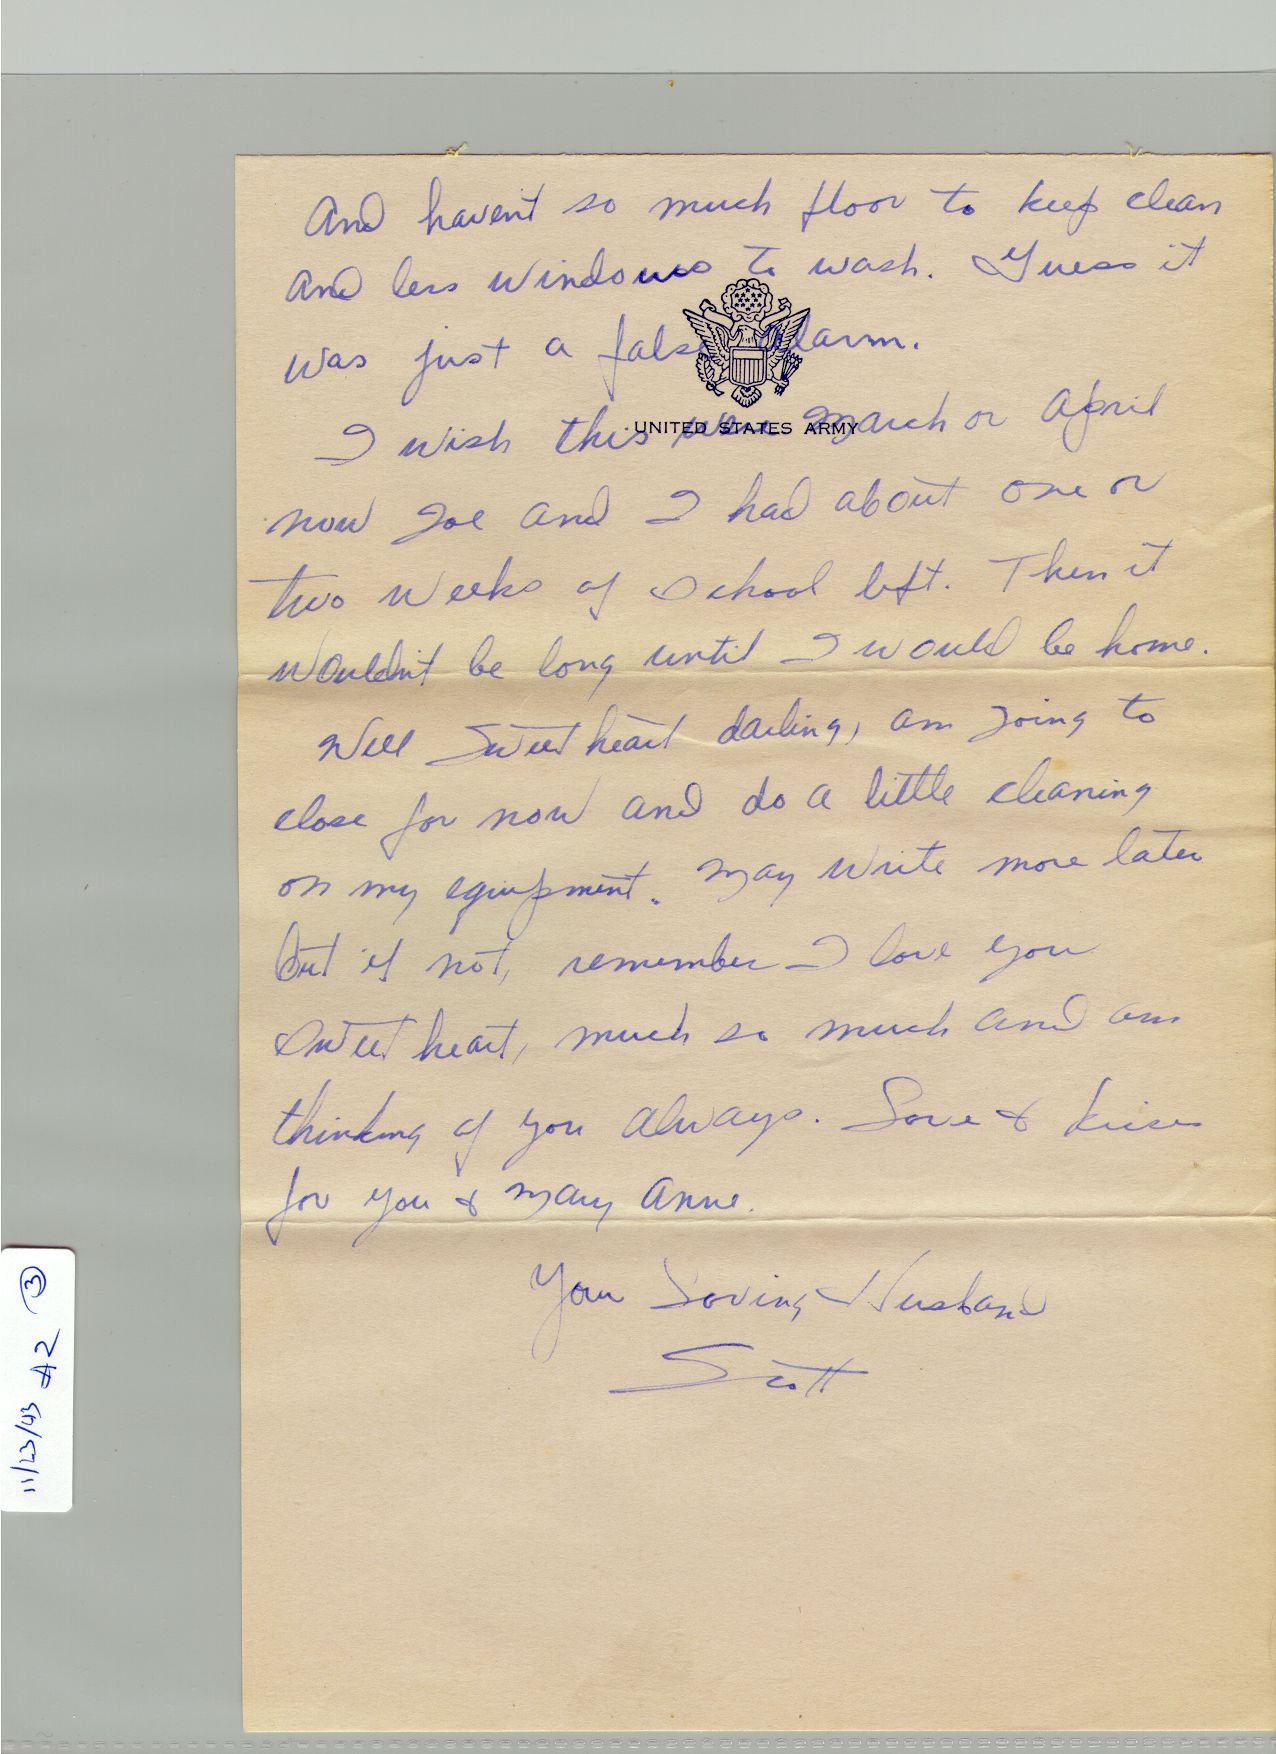 and haven't so much floor to keep clean
and less windows to wash. Guess it
was just a false alarm.
UNITED STATES ARMY
I wish this were March or April
now Joe and I had about one or
two weeks of school left. Then it
wouldn't be long until I would be home.
Well Sweetheart darling, am going to
close for now and do a little cleaning
on my equipment. May write more later
but if not, remember I love you
Sweetheart, much so much and am
thinking of you always. Love & kisses
for you & Mary Anne.
Your Loving Husband
Scott
11/23/43 #2 3